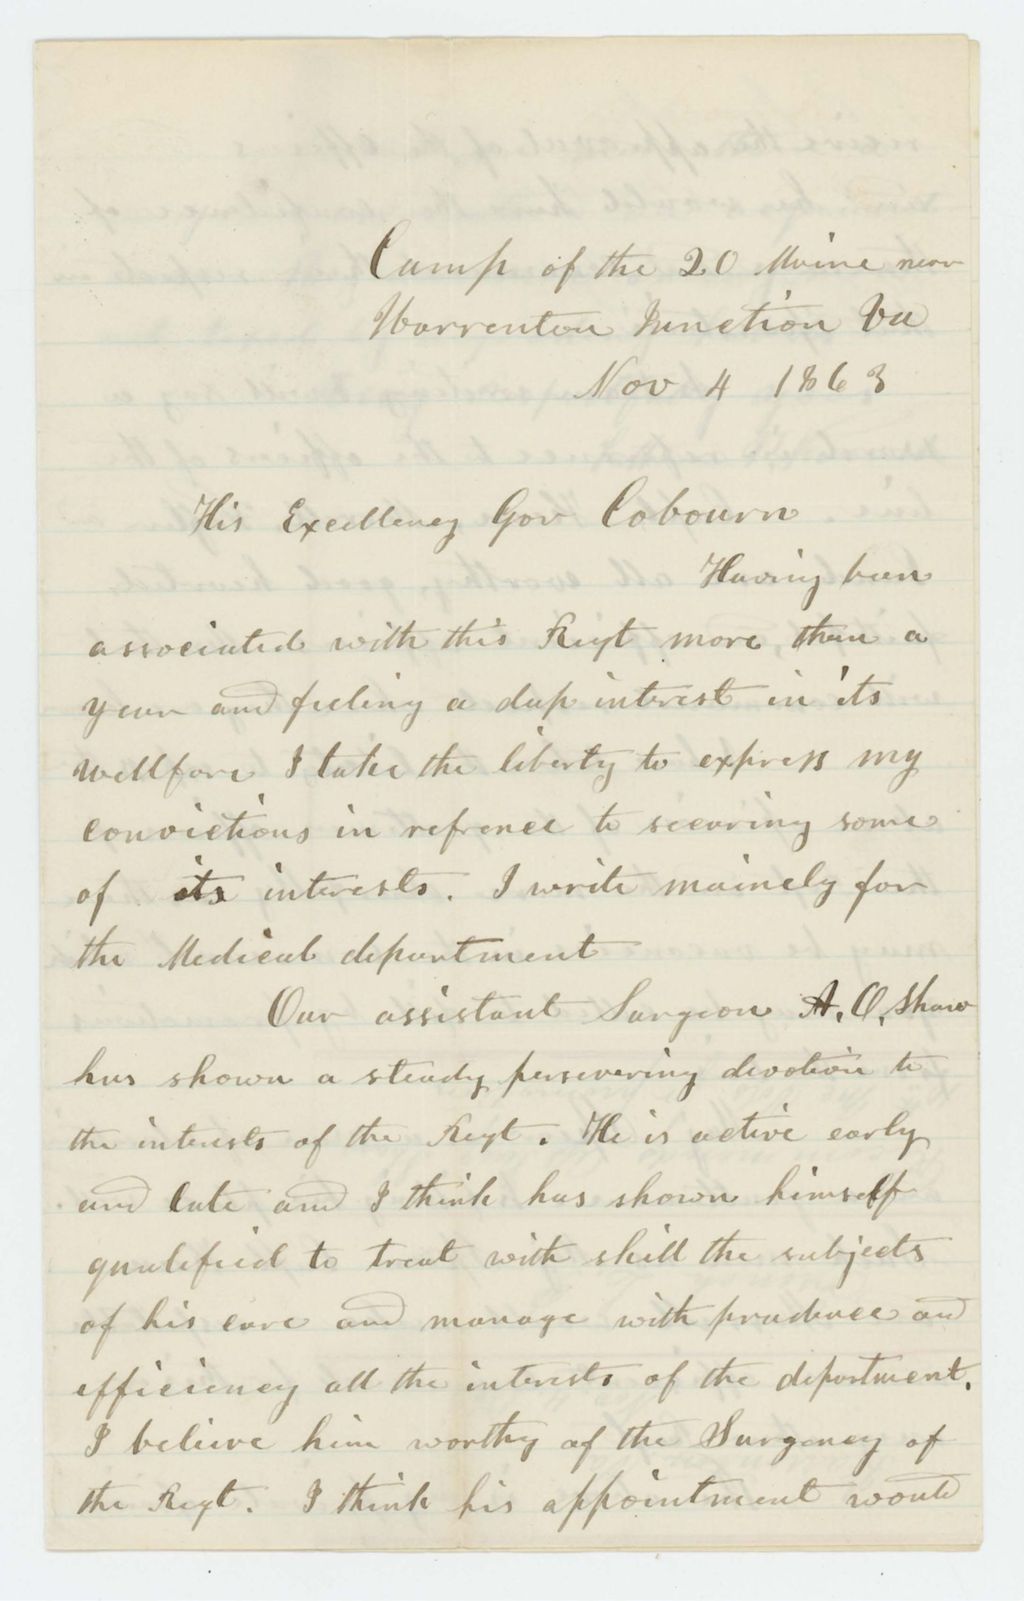 Camp of the 20 Maine near
Warrenton Junction Va
Nov 4 1863
His Excellency Gov Cobourn
Having been
associated with this Regt more than a
year and feeling a deep interest in its
wellfare I take the liberty to express my
convictions in refrence to securing some
of its interests. I write mainely for
the Medical department
Our assistant Surgeon A. O. Shaw
has shown a steady persevering devotion to
the interests of the Regt. He is active early
and late and I think has shown himself
qualified to treat with skill the subjects
of his care and manage with prudence and
efficiency all the interests of the department.
I believe him worthy of the Surgency of
the Regt. I think his appointment would